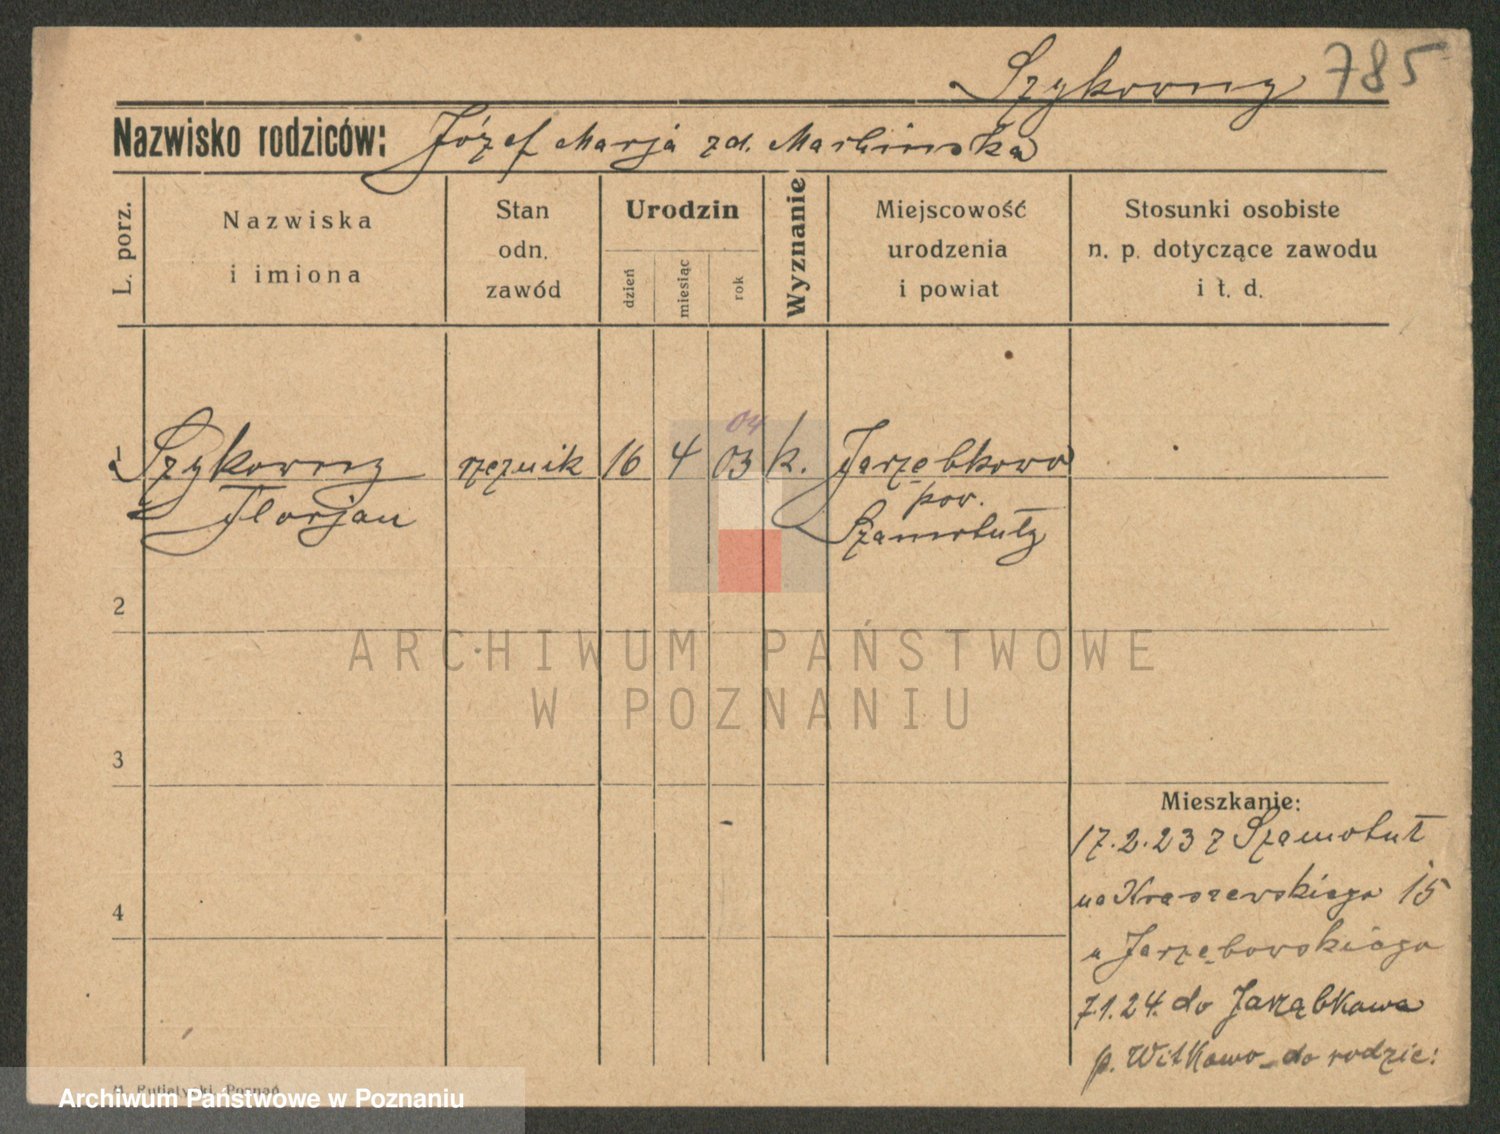 Szykowny 785
Nazwisko rodziców: Józef Marja zd. Marlińska
L. porz.
Nazwiska
i imiona
Stan
odn.
zawód
Urodzin
dzień
miesiąc
rok
Wyznanie
Miejscowość
urodzenia
i powiat
Stosunki osobiste
n. p. dotyczące zawodu
i t. d.
04
1 Szykowny rzeźnik 16 4 03 k. Jarząbkowo
Florjan pow.
Szamotuły
2
ARCHIWUM PAŃSTWOWE
W POZNANIU
3
Mieszkanie:
17.2.23 z Szamotuł
na Kraszewskiego 15
4
u Jarzębowskiego
7.1.24. do Jarząbkowa
p. Witkowo do rodzic:
Poznań
Archiwum Państwowe w Poznaniu